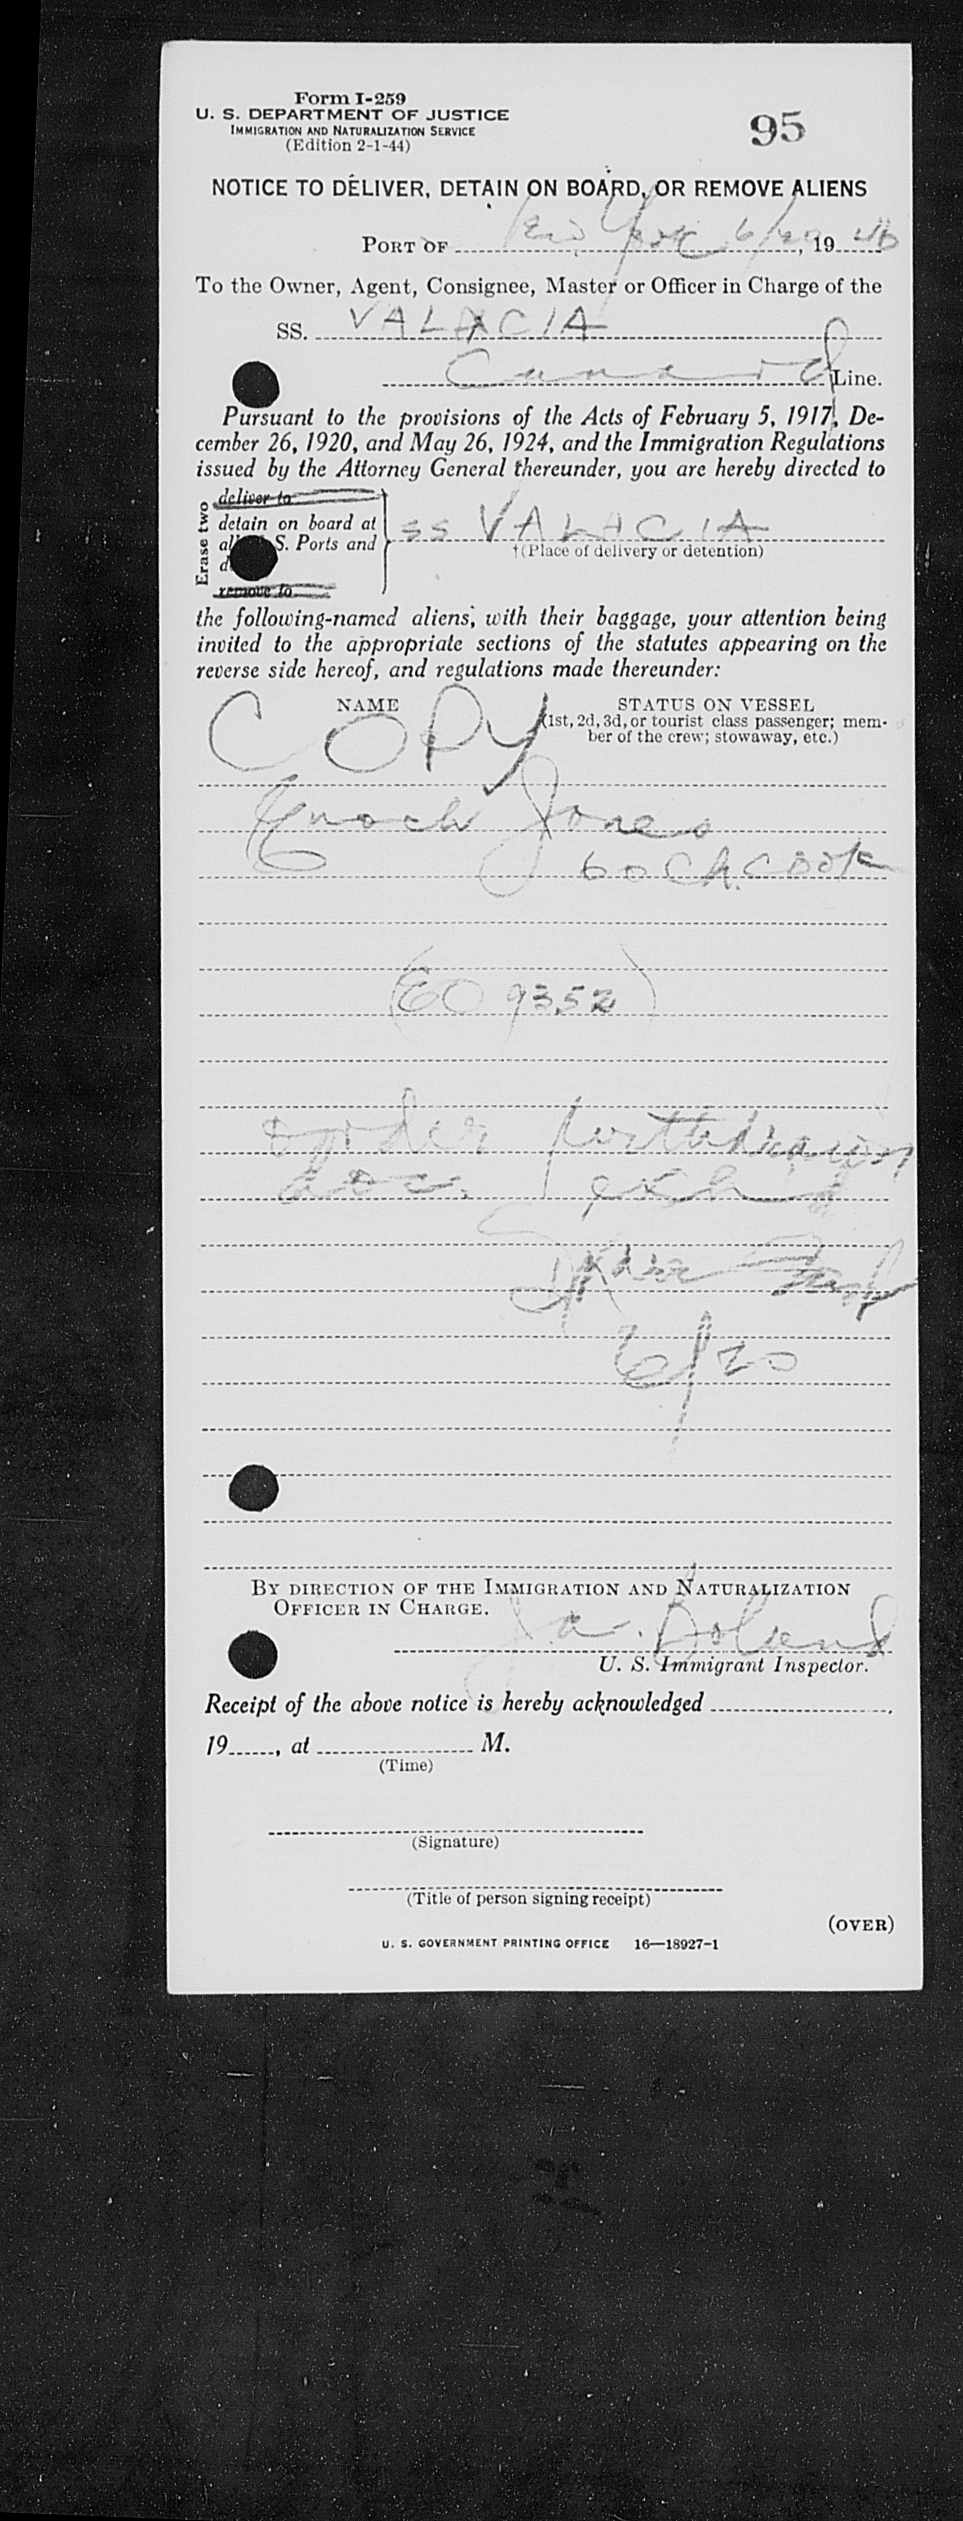 Form I-259
U. S. DEPARTMENT OF JUSTICE
IMMIGRATION AND NATURALIZATION SERVICE
(Edition 2-1-44)
95
NOTICE TO DELIVER, DETAIN ON BOARD, OR REMOVE ALIENS
PORT OF New York 6/20, 19 46
To the Owner, Agent, Consignee, Master or Officer in Charge of the
SS. VALACIA
Cunard Line.
Pursuant to the provisions of the Acts of February 5, 1917, De-
cember 26, 1920, and May 26, 1924, and the Immigration Regulations
issued by the Attorney General thereunder, you are hereby directed to
Erase two
deliver to
detain on board at
S. Ports and
remove to
SS VALACIA
†(Place of delivery or detention)
the following-named aliens, with their baggage, your attention being
invited to the appropriate sections of the statutes appearing on the
reverse side hereof, and regulations made thereunder:
NAME
STATUS ON VESSEL
(1st, 2d, 3d, or tourist class passenger; mem-
ber of the crew; stowaway, etc.)
COPY
Enoch Jones
60 Ch. Cook
(EO 9352)
order withdrawn
doc.
6/20
BY DIRECTION OF THE IMMIGRATION AND NATURALIZATION
OFFICER IN CHARGE.
J.A. Boland
U. S. Immigrant Inspector.
Receipt of the above notice is hereby acknowledged
19......, at .................... M.
(Time)
(Signature)
(Title of person signing receipt)
(OVER)
U. S. GOVERNMENT PRINTING OFFICE 16—18927-1